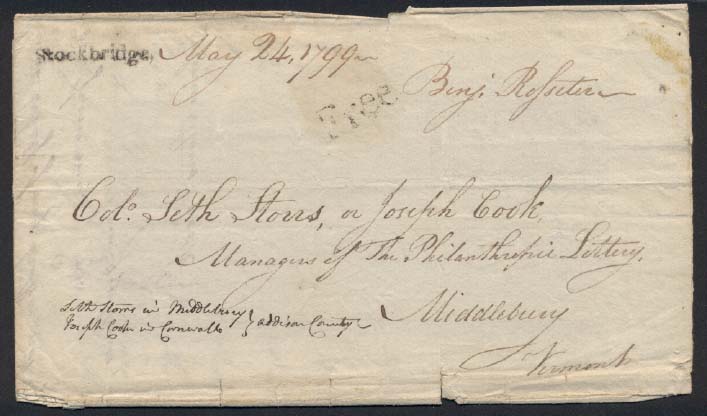 Stockbridge, May 24, 1799
Free
Benj. Rosseter
Colo. Seth Storrs, or Joseph Cook,
Managers of The Philanthropic Lottery,
Middlebury
Vermont
Seth Storrs in Middlebury
Joseph Cook in Cornwall } addison County